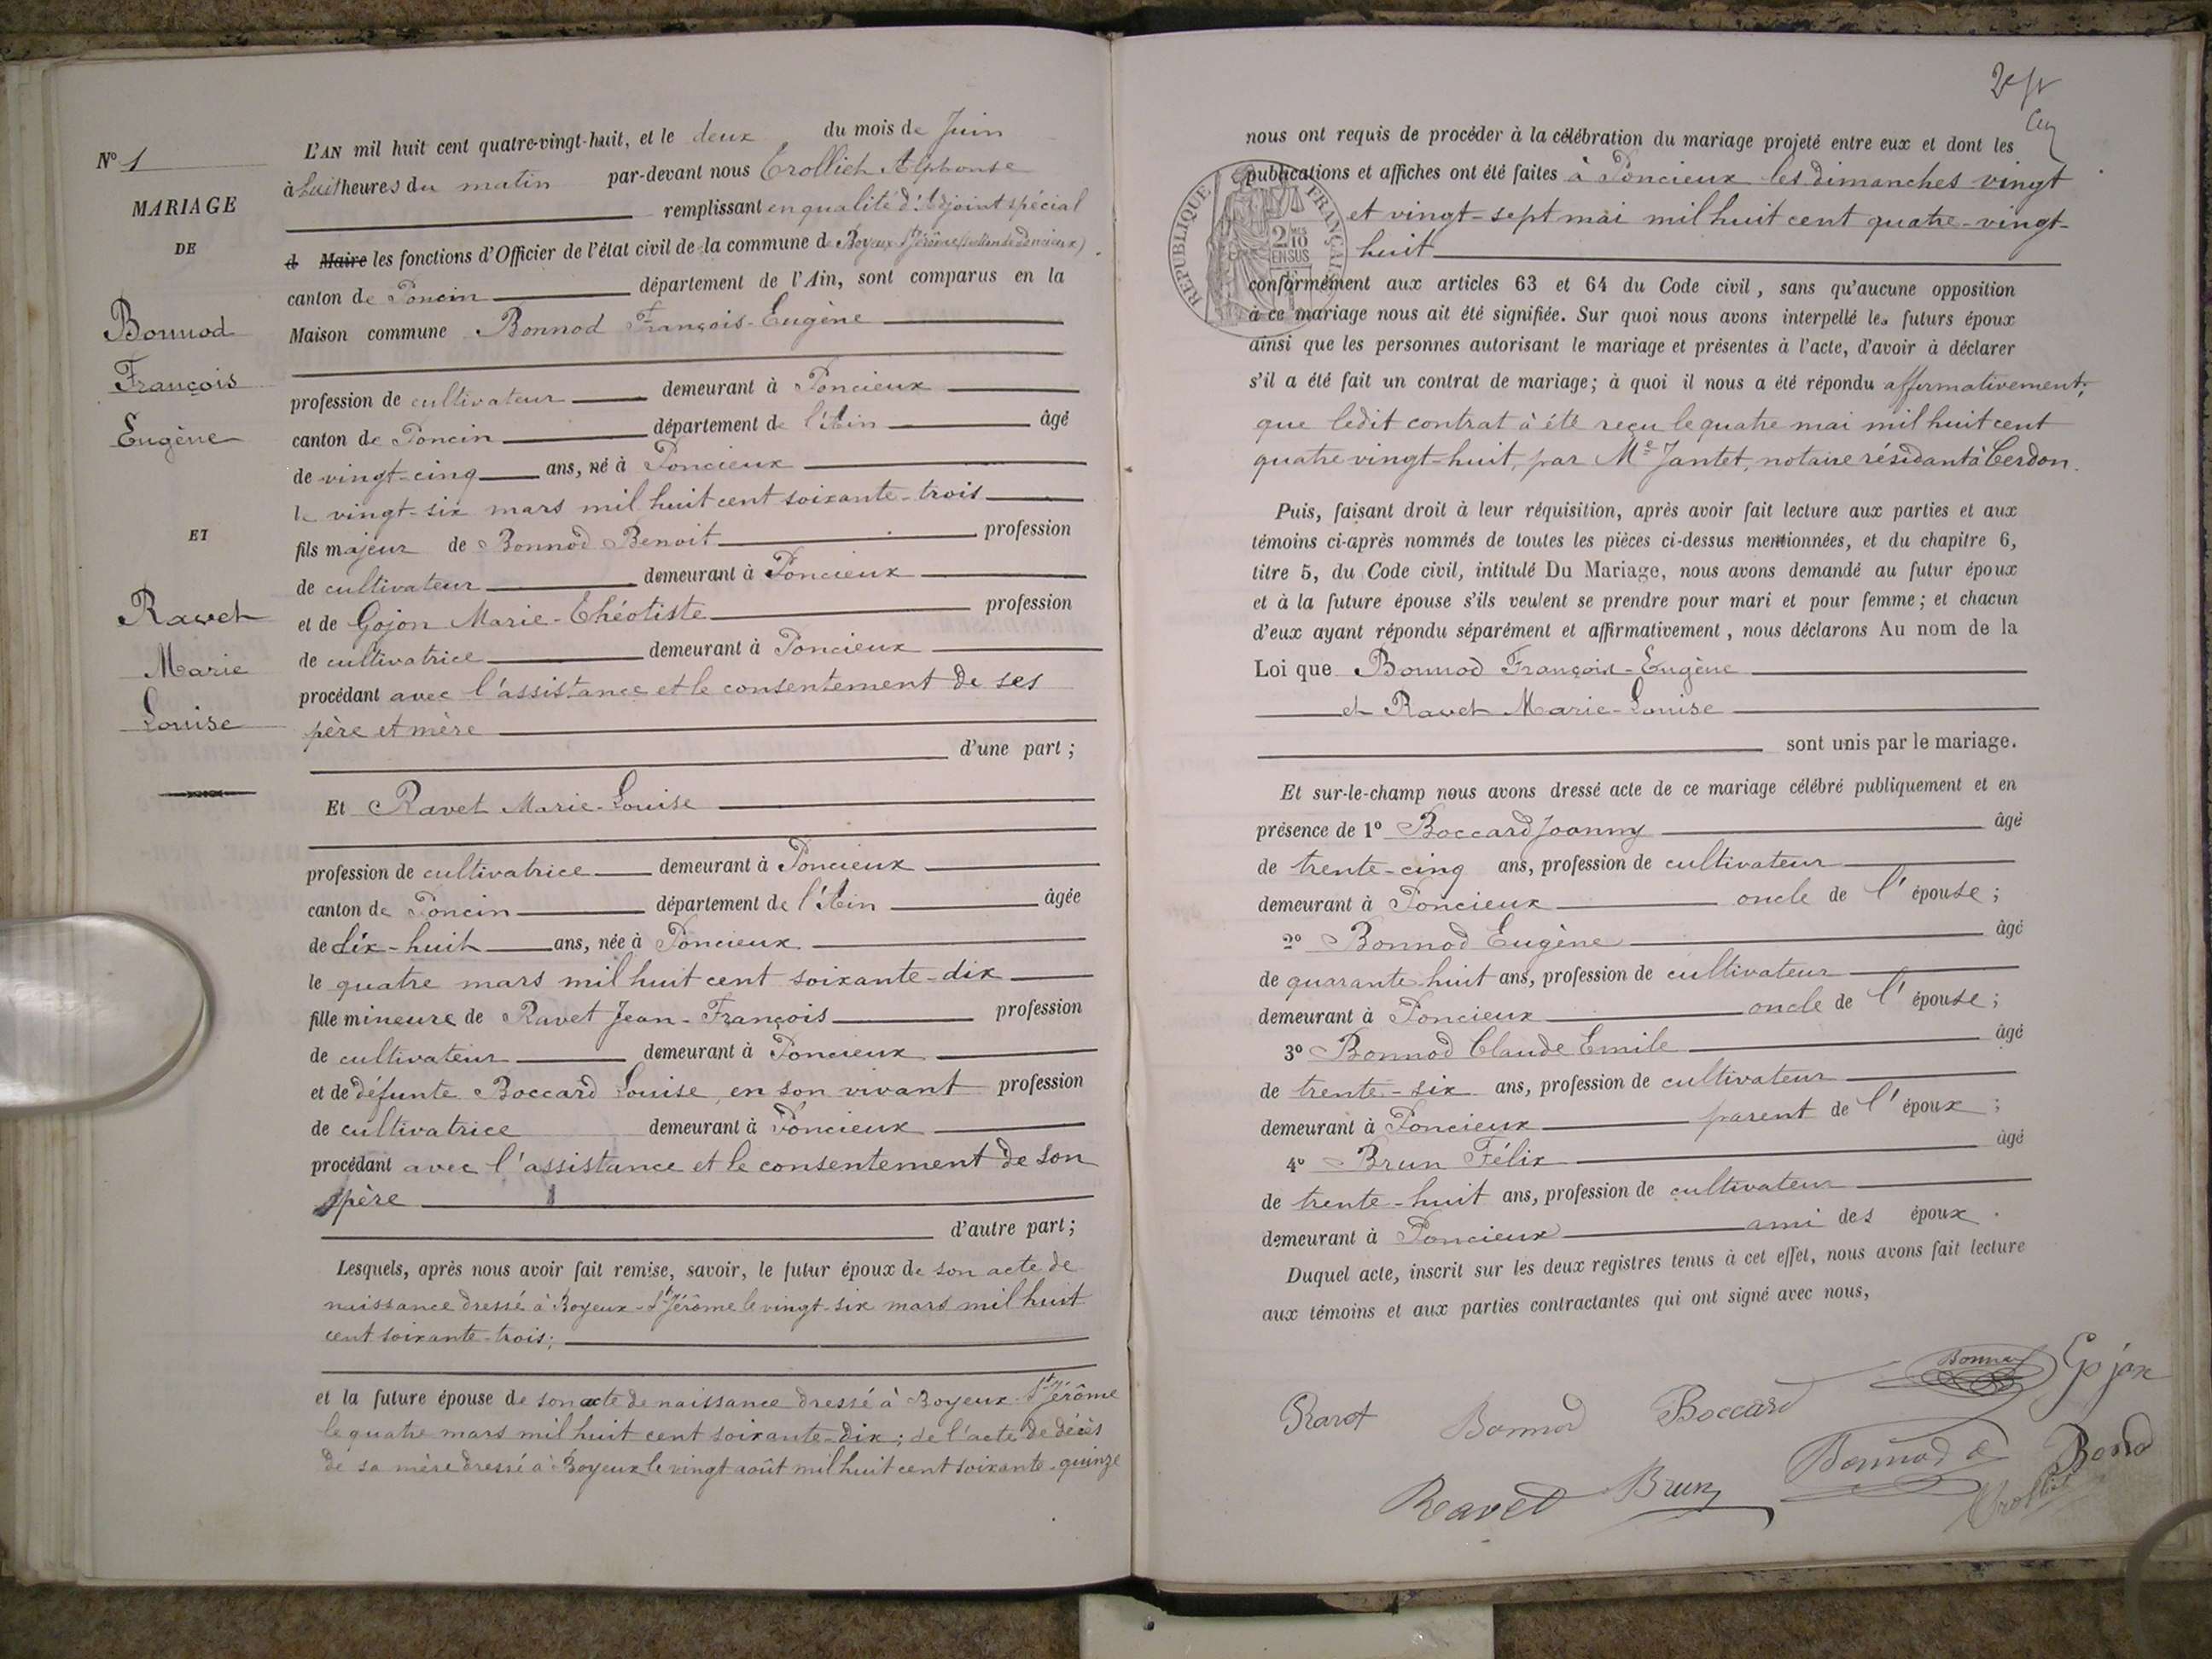 N° 1
MARIAGE
DE
Bonnod
François
Eugène
ET
Ravet
Marie
Louise
L'AN mil huit cent quatre-vingt-huit, et le deux du mois de Juin
à huit heures du matin par-devant nous Trollict Alphonse
remplissant en qualité d'Adjoint spécial
d Maire les fonctions d'Officier de l'état civil de la commune de Boyeux St Jérôme (section de Poncieux)
canton de Poncin département de l'Ain, sont comparus en la
Maison commune Bonnod François-Eugène
profession de cultivateur demeurant à Poncieux
canton de Poncin département de l'Ain âgé
de vingt-cinq ans, né à Poncieux
le vingt-six mars mil huit cent soixante-trois
fils majeur de Bonnod Benoit profession
de cultivateur demeurant à Poncieux
et de Gojon Marie-Théotiste profession
de cultivatrice demeurant à Poncieux
procédant avec l'assistance et le consentement de ses
père et mère
d'une part ;
Et Ravet Marie-Louise
profession de cultivatrice demeurant à Poncieux
canton de Poncin département de l'Ain âgée
de dix-huit ans, née à Poncieux
le quatre mars mil huit cent soixante-dix
fille mineure de Ravet Jean-François profession
de cultivateur demeurant à Poncieux
et de défunte Boccard Louise, en son vivant profession
de cultivatrice demeurant à Poncieux
procédant avec l'assistance et le consentement de son
père
d'autre part ;
Lesquels, après nous avoir fait remise, savoir, le futur époux de son acte de
naissance dressé à Boyeux-St Jérôme le vingt-six mars mil huit
cent soixante-trois;
et la future épouse de son acte de naissance dressé à Boyeux-St Jérôme
le quatre mars mil huit cent soixante-dix ; de l'acte de décès
de sa mère dressé à Boyeux le vingt août mil huit cent soixante-quinze
nous ont requis de procéder à la célébration du mariage projeté entre eux et dont les
publications et affiches ont été faites à Poncieux les dimanches vingt
et vingt-sept mai mil huit cent quatre-vingt-
huit
RÉPUBLIQUE FRANÇAISE
2 MES
10
EN SUS
conformément aux articles 63 et 64 du Code civil, sans qu'aucune opposition
à ce mariage nous ait été signifiée. Sur quoi nous avons interpellé les futurs époux
ainsi que les personnes autorisant le mariage et présentes à l'acte, d'avoir à déclarer
s'il a été fait un contrat de mariage; à quoi il nous a été répondu affirmativement;
que ledit contrat à été reçu le quatre mai mil huit cent
quatre vingt-huit, par Me Jantet, notaire résidant à Cerdon.
Puis, faisant droit à leur réquisition, après avoir fait lecture aux parties et aux
témoins ci-après nommés de toutes les pièces ci-dessus mentionnées, et du chapitre 6,
titre 5, du Code civil, intitulé Du Mariage, nous avons demandé au futur époux
et à la future épouse s'ils veulent se prendre pour mari et pour femme ; et chacun
d'eux ayant répondu séparément et affirmativement, nous déclarons Au nom de la
Loi que Bonnod François-Eugène
et Ravet Marie-Louise
sont unis par le mariage.
Et sur-le-champ nous avons dressé acte de ce mariage célébré publiquement et en
présence de 1° Boccard Joanny âgé
de trente-cinq ans, profession de cultivateur
demeurant à Poncieux oncle de l'épouse ;
2° Bonnod Eugène âgé
de quarante-huit ans, profession de cultivateur
demeurant à Poncieux oncle de l'épouse ;
3° Bonnod Claude Emile âgé
de trente-six ans, profession de cultivateur
demeurant à Poncieux parent de l'époux ;
4° Brun Félix âgé
de trente-huit ans, profession de cultivateur
demeurant à Poncieux ami des époux.
Duquel acte, inscrit sur les deux registres tenus à cet effet, nous avons fait lecture
aux témoins et aux parties contractantes qui ont signé avec nous,
Bonnod Gojon
Ravet Bonnod Boccard
Ravet Brun Bonnod